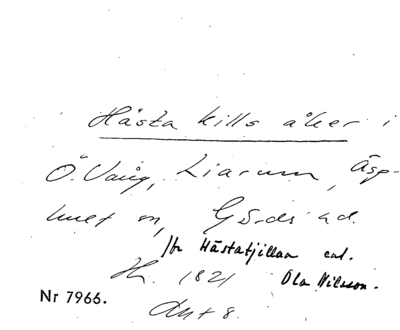 Hästa kills åker i
Ö. Vång, Liarum, Äsp-
huet sn, Gärds hd.
Hästatjillan enl.
Hr. 1821 Ola Nilsson.
Nr 7966.
Akt 8.